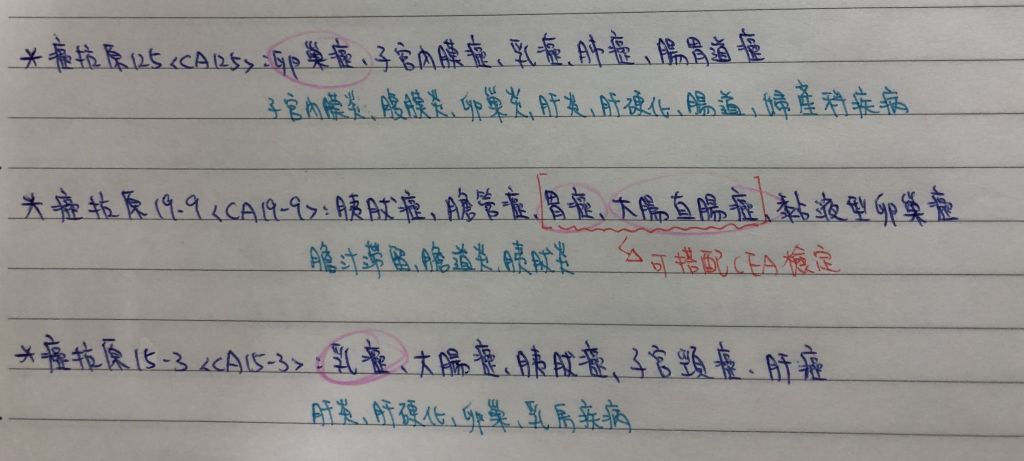 *癌抗原125<CA125>:卵巢癌、子宮內膜癌、乳癌、肺癌、腸胃道癌
子宮內膜炎、腹膜炎、卵巢炎、肝炎、肝硬化、腸道、婦產科疾病
*癌抗原19-9<CA19-9>:胰臟癌、膽管癌、[胃癌、大腸直腸癌]、黏液型卵巢癌
膽汁滯留、膽道炎、胰臟炎
可搭配CEA檢定
*癌抗原15-3<CA15-3>:乳癌、大腸癌、胰臟癌、子宮頸癌、肝癌
肝炎、肝硬化、卵巢、乳房疾病